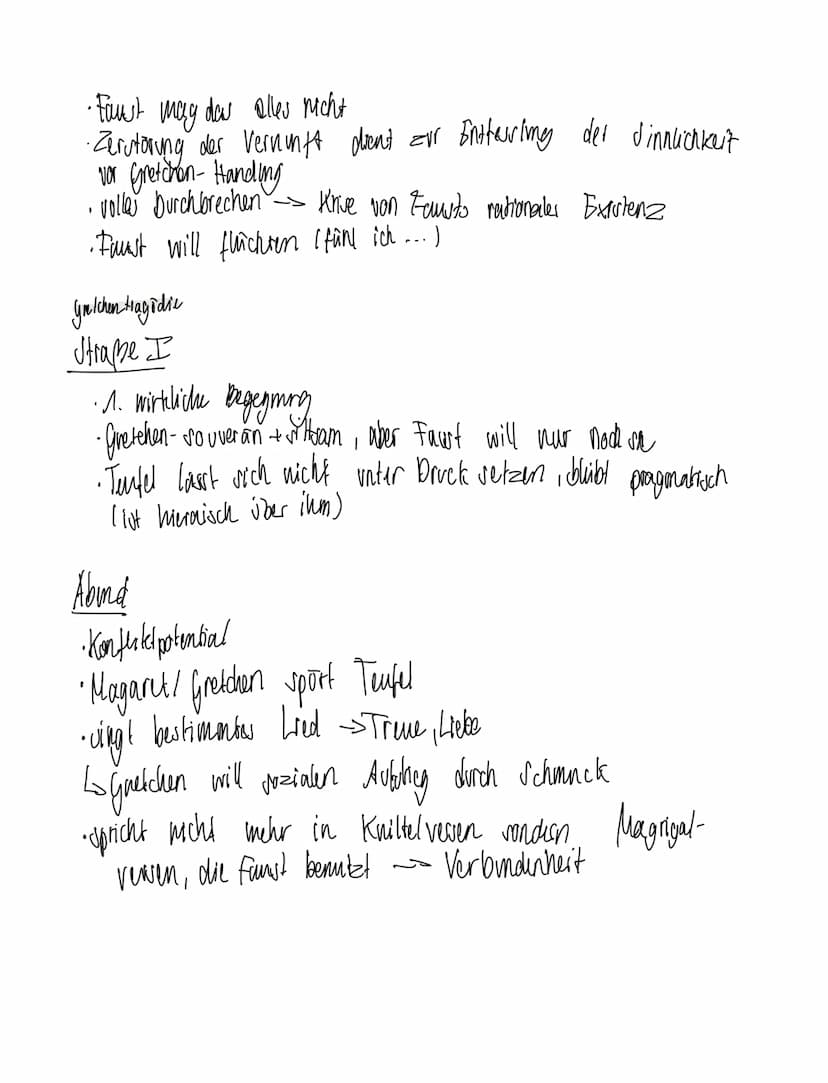 · Faust mag das alles nicht
· Zerstörung der Vernunft dient zur Entfesslung der Sinnlichkeit
vor Gretchen-Handlung
· volles Durchbrechen → Krise von Fausts rationaler Existenz
· Faust will flüchten (fühl ich ...)
Gretchentragödie
Straße I
· 1. wirkliche Begegnung
· Gretchen - souverän + sittsam, aber Faust will nur noch sie
· Teufel lässt sich nicht unter Druck setzen, bleibt pragmatisch
(ist über ihm)
Abend
· Konfliktpotential
· Magaret/ Gretchen spürt Teufel
· singt bestimmtes Lied → Treue, Liebe
↳ Gretchen will sozialen Aufstieg durch Schmuck
· spricht nicht mehr in Knittelversen sondern Magrigal-
versen, die Faust benutzt → Verbundenheit